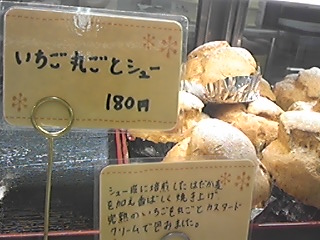 いちご丸ごとシュー
180円
シュー皮に焙煎したはだか麦
を加え香ばしく焼き上げ
完熟のいちごを丸ごとカスタード
クリームで包みました。